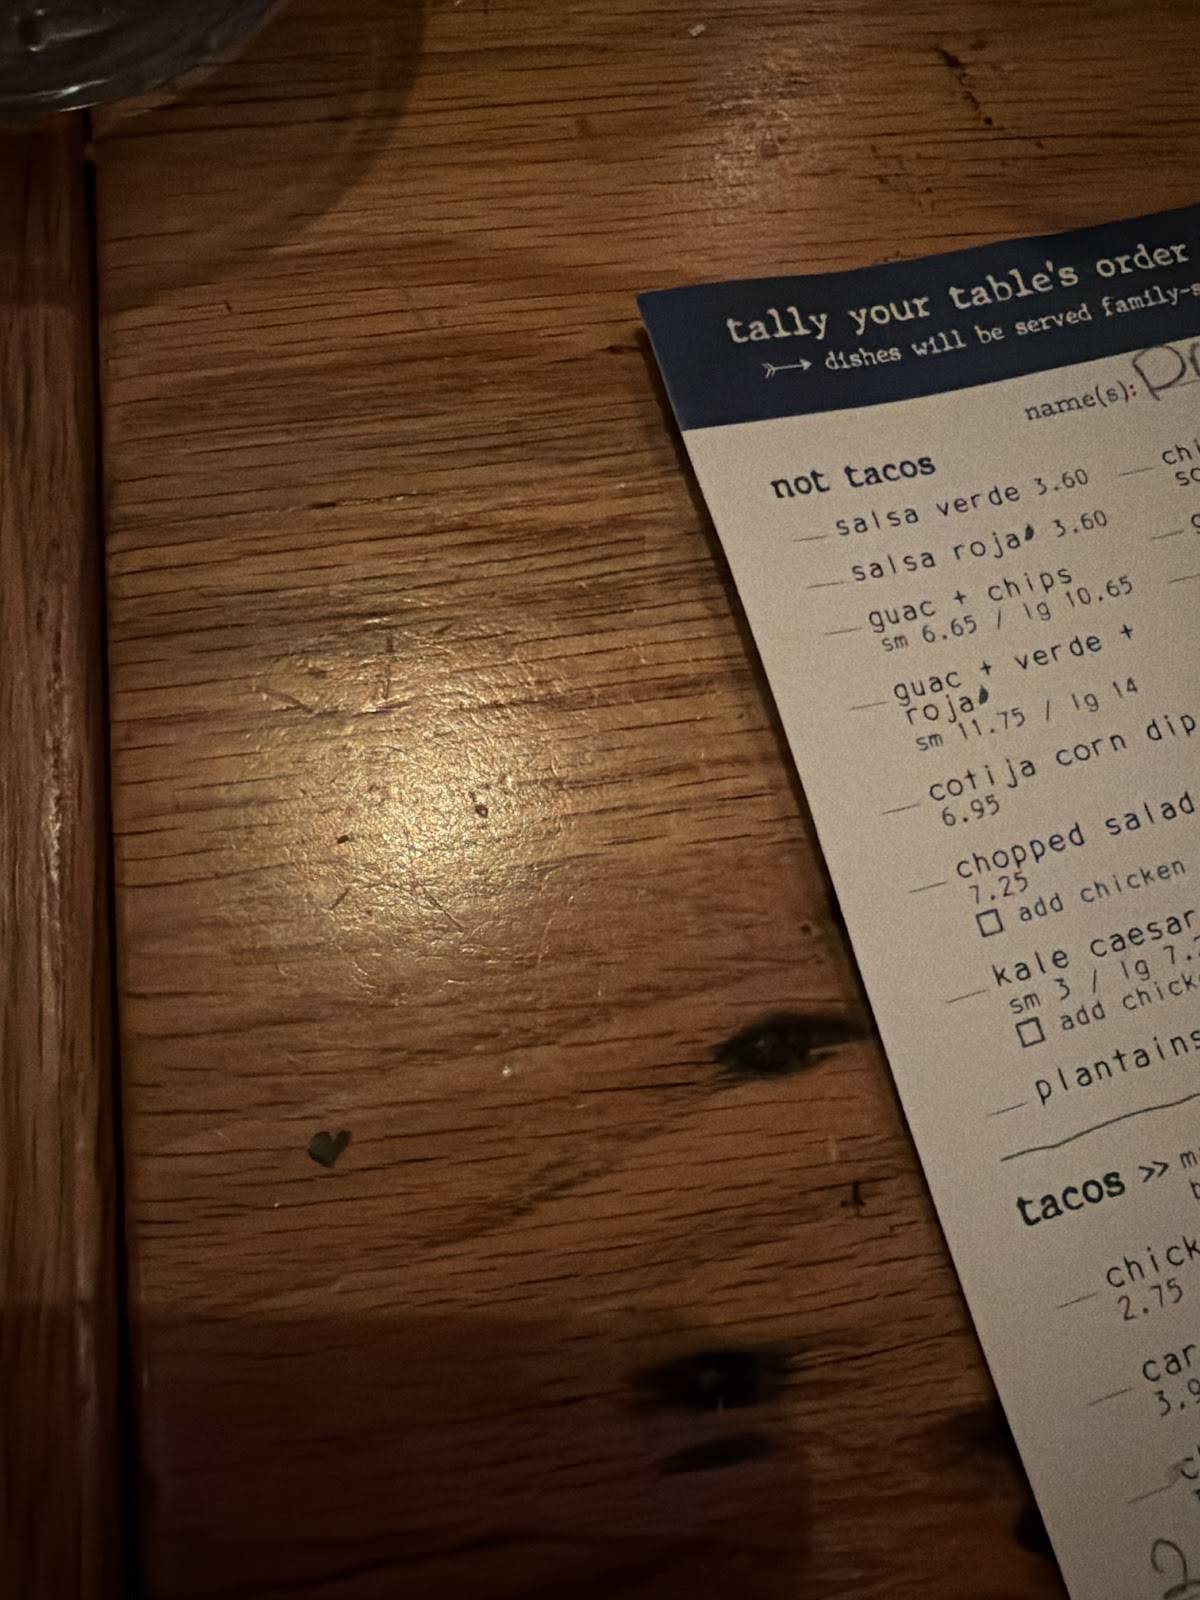 tally your table's order
dishes will be served family-s
name(s):
not tacos
salsa verde 3.60
salsa roja 3.60
guac + chips
sm 6.65 / lg 10.65
guac + verde +
roja
sm 11.75 / lg 14
cotija corn dip
6.95
chopped salad
7.25
add chicken
kale caesar
sm 3 / lg 7.
add chick
plantains
tacos >>
chick
2.75
car
3.9
2